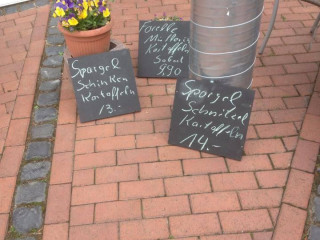 Spargel
Schinken
Kartoffeln
13.-
Forelle
Müllerin
Kartoffeln
Salat
9,90
Spargel
Schnitzel
Kartoffeln
14.-